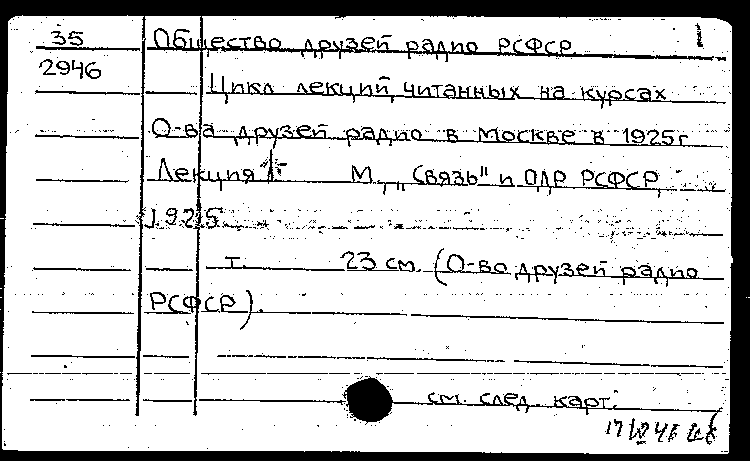 35 Общество друзей радио РСФСР. 1
2946 Цикл лекций, читанных на курсах
О-ва друзей радио в Москве в 1925г
Лекция М., „Связь" и ОДР РСФСР,
1925
т. 23 см. (О-во друзей радио
РСФСР).
см. след. карт.
17 46